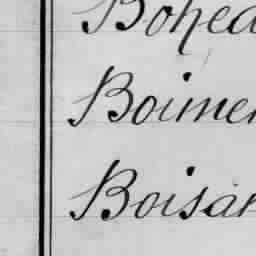 Bohed
Boimer
Boisar